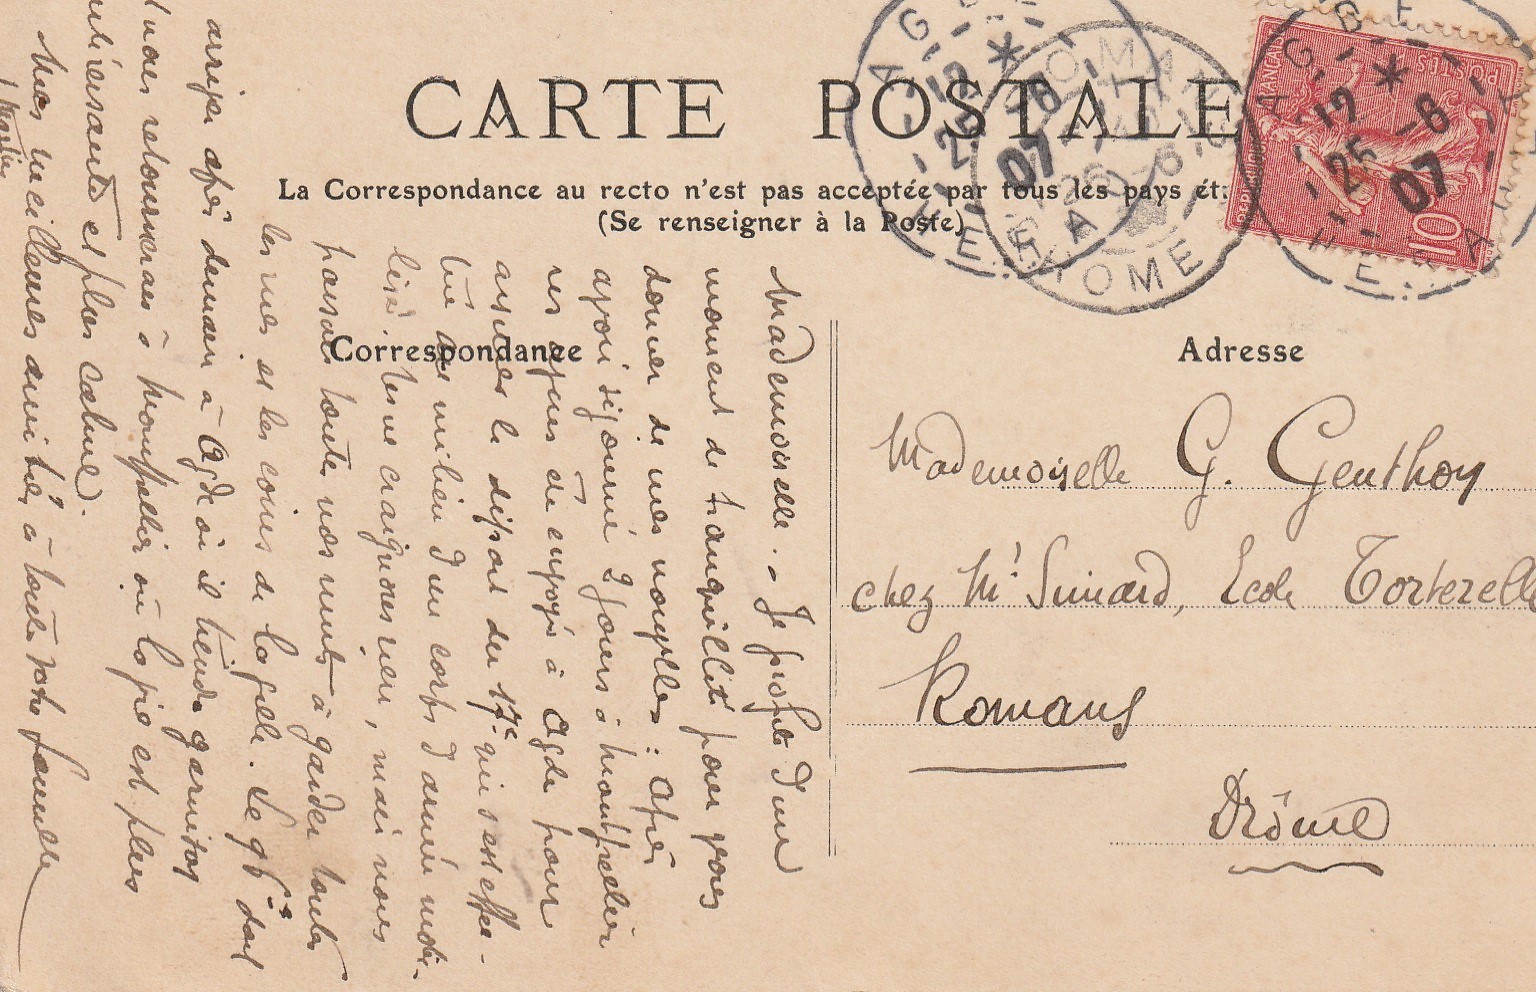 CARTE POSTALE
La Correspondance au recto n'est pas acceptée par tous les pays ét
(Se renseigner à la Poste)
Correspondance
Mademoiselle. - Je profite d'un
moment de tranquillité pour vous
donner de mes nouvelles : après
avoir séjourné 2 jours à Montpellier
on envoyé à Agde pour
assurer le départ du 17e qui s'est effec-
tué au milieu d'un corps d'armée mobi-
lisé. craignons rien, mais nous
passons toutes nos nuits à garder toutes
les rues et les coins de la ville. Le 96e doit
arriver après demain à Agde où il tiendra garnison
nous retournerons à Montpellier où la vie est plus
et plus calme.
Mes meilleures amitiés à toute votre famille
Adresse
Mademoiselle G. Genthon
chez Mr Simard, Ecole Tortezelle
Romans
Drôme
AGDE
12
25 -6
07
HERAULT
ROMANS
26 -6
07
DROME
AGDE
12
25 -6
07
HERAULT
POSTES
10